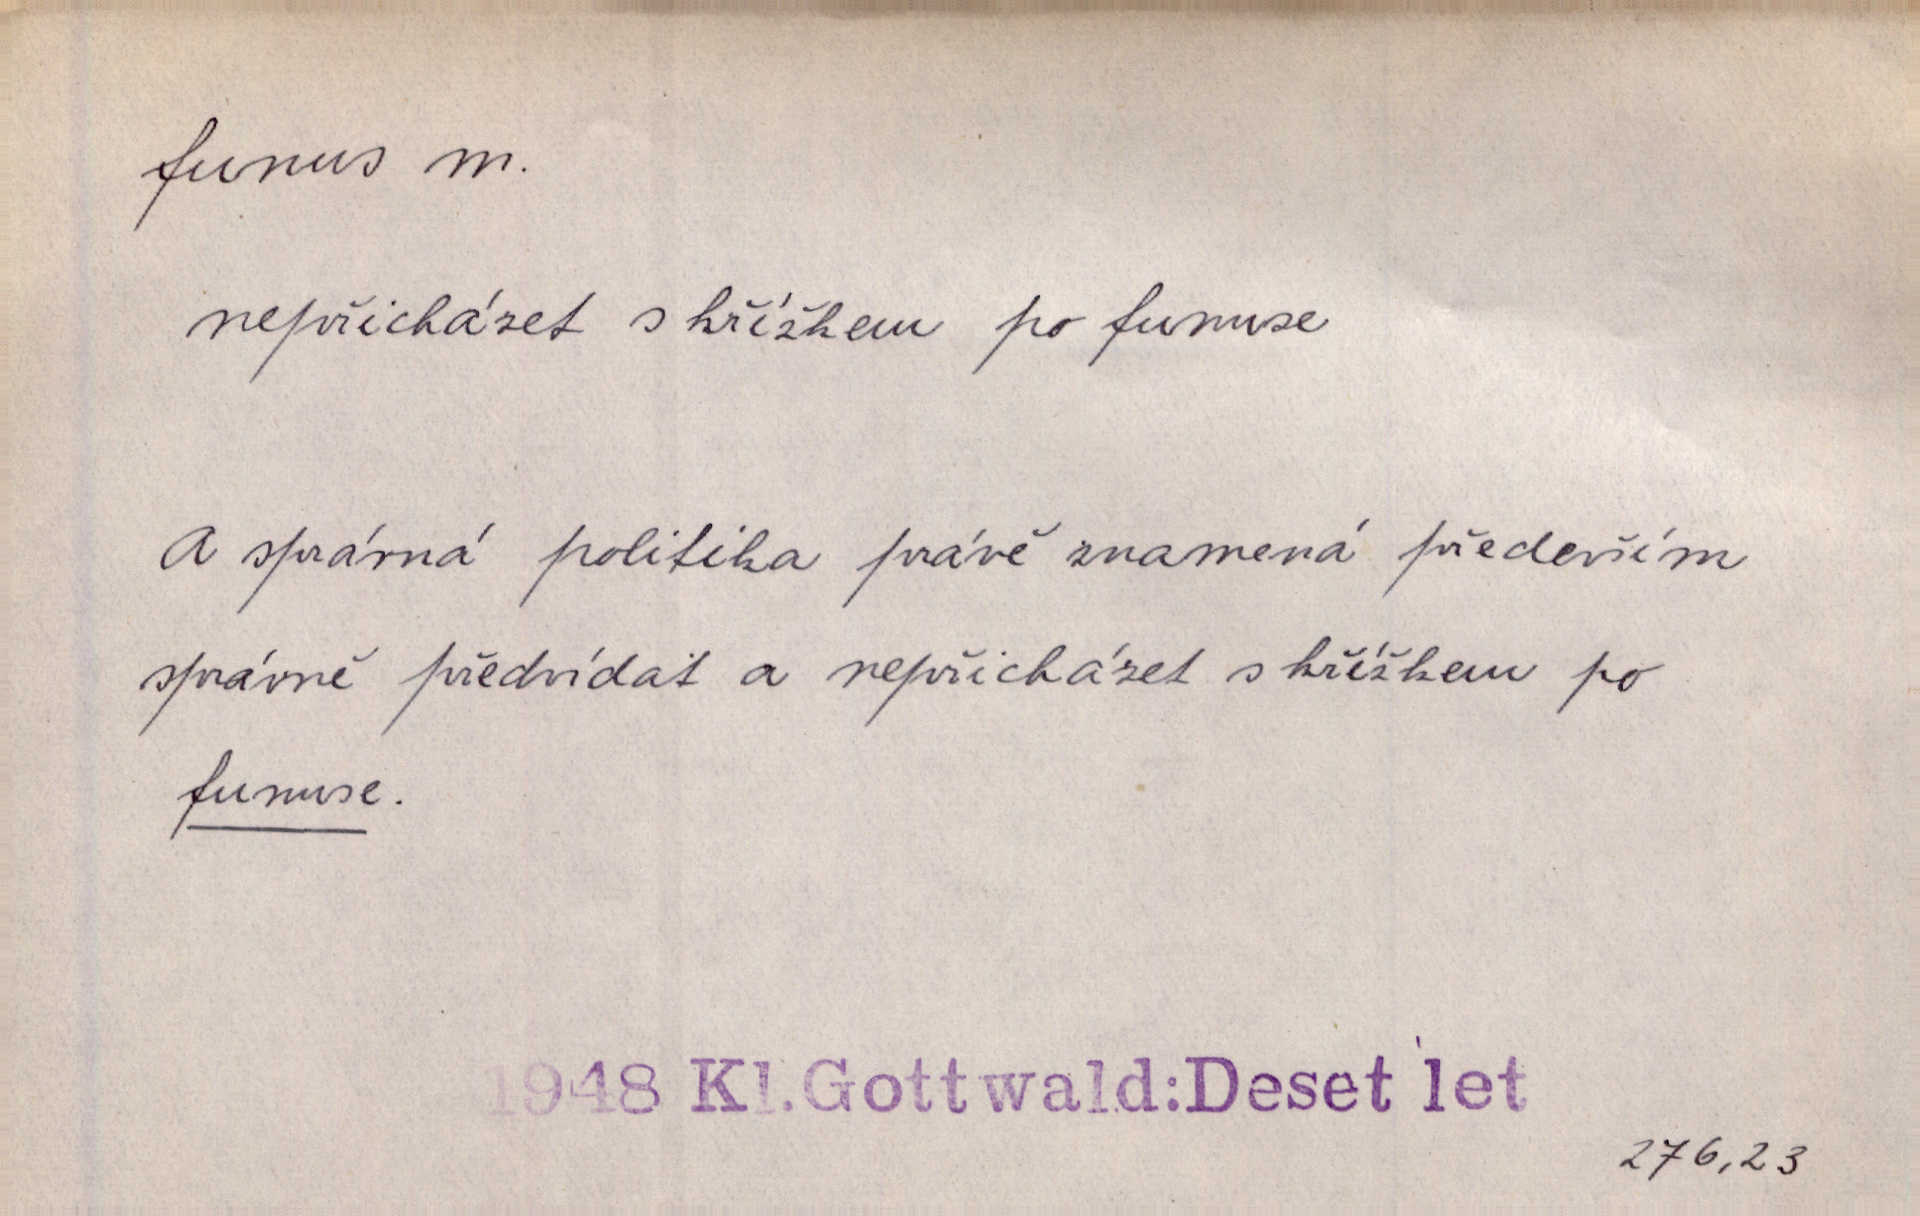 funus m.
nepřicházet s křížkem po funuse
A správná politika právě znamená především
správně předvídat a nepřicházet s křížkem po
funuse.
1948 Kl.Gottwald:Deset let
276,23